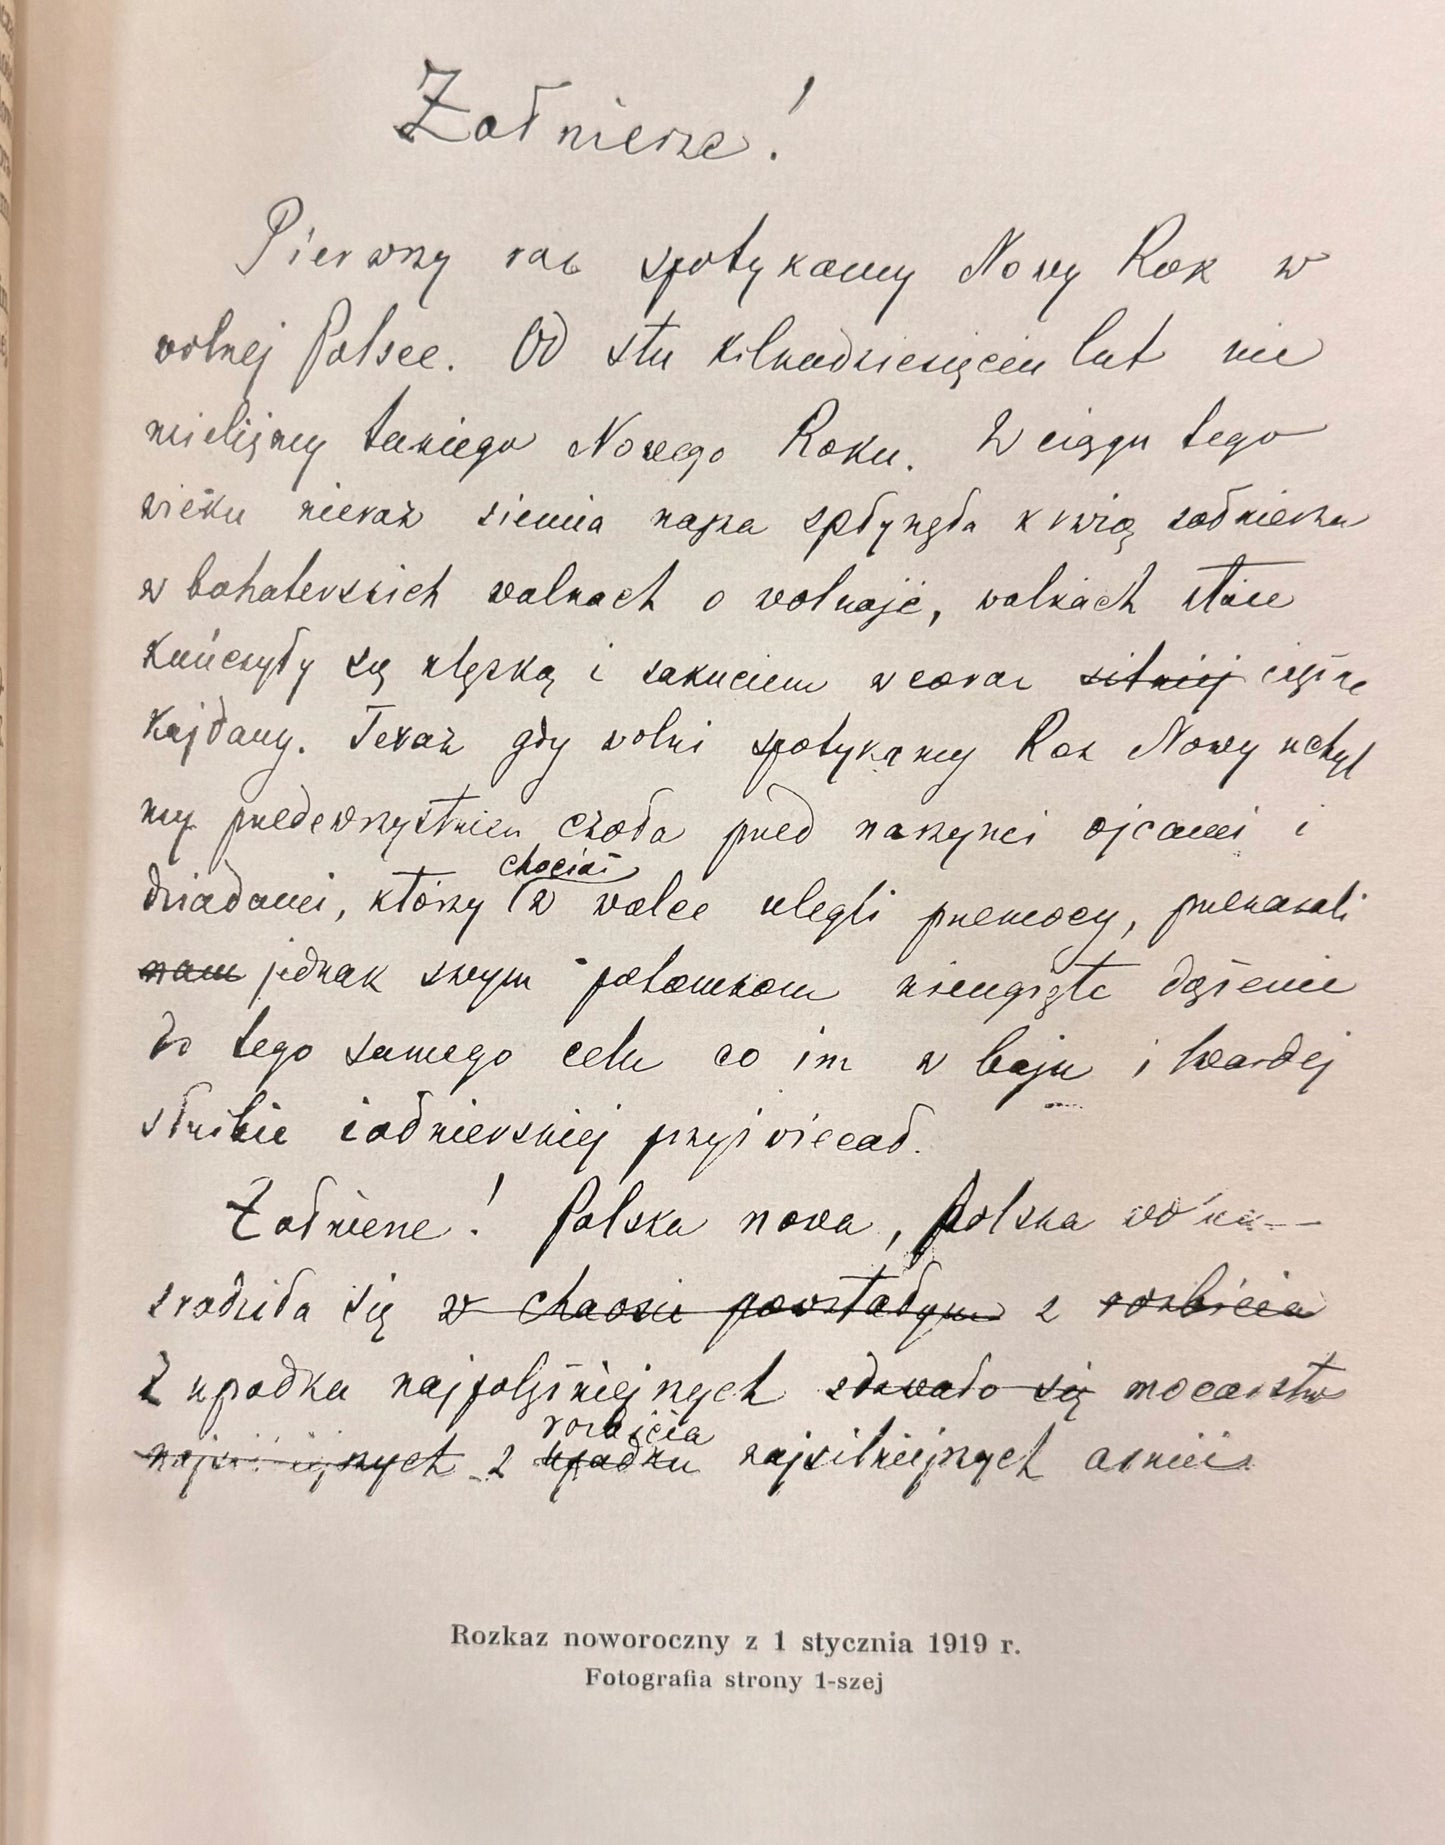 Żołnierze!
Pierwszy raz spotykamy Nowy Rok w
wolnej Polsce. Od stu kilkadziesięciu lat nie
mieliśmy takiego Nowego Roku. W ciągu tego
wieku nieraz ziemia nasza spłynęła krwią żołnierza
w bohaterskich walkach o wolność, walkach które
kończyły się klęską i zakuciem w coraz silniej cięższe
kajdany. Teraz gdy wolni spotykamy Rok Nowy uchyl
my przedewszystkiem czoła przed naszymi ojcami i
chociaż
dziadami, którzy w walce ulegli przemocy, przekazali
nam jednak swym potomkom nieugięte dążenie
do tego samego celu co im w boju i twardej
służbie żołnierskiej przyświecał.
Żołnierze! Polska nowa, Polska
zrodziła się w chaosie powstałym z rozbicia
z upadku najpotężniejszych zdawało się mocarstw
rozbicia
najsilniejszych z upadku najsilniejszych armii.
Rozkaz noworoczny z 1 stycznia 1919 r.
Fotografia strony 1-szej